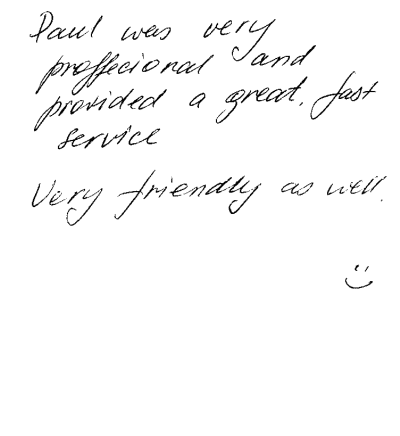 Paul was very
proffecional and
provided a great, fast
service
Very friendly as well.